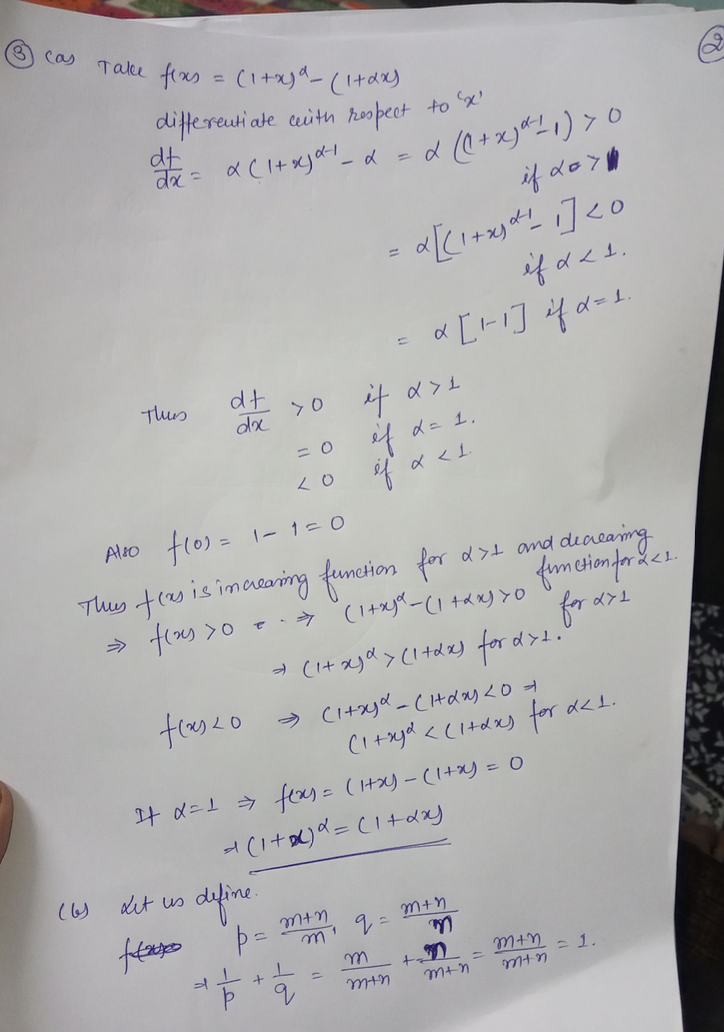 ②
③ (a) Take f(x) = (1+x)^α - (1+αx)
differentiate with respect to 'x'
df/dx = α(1+x)^(α-1) - α = α((1+x)^(α-1) - 1) > 0
if α >
= α[(1+x)^(α-1) - 1] < 0
if α < 1.
= α[1-1] if α=1.
Thus df/dx > 0 if α > 1
= 0 if α = 1.
< 0 if α < 1
Also f(0) = 1 - 1 = 0
Thus f(x) is increasing function for α>1 and decreasing
function for α<1.
⇒ f(x) > 0 ⇒ (1+x)^α - (1+αx) > 0 for α>1
⇒ (1+x)^α > (1+αx) for α>1.
f(x) < 0 ⇒ (1+x)^α - (1+αx) < 0 ⇒
(1+x)^α < (1+αx) for α<1.
If α=1 ⇒ f(x) = (1+x) - (1+x) = 0
⇒ (1+x)^α = (1+αx)
(b) Let us define.
p = m+n/m, q = m+n/n
⇒ 1/p + 1/q = m/m+n + n/m+n = m+n/m+n = 1.